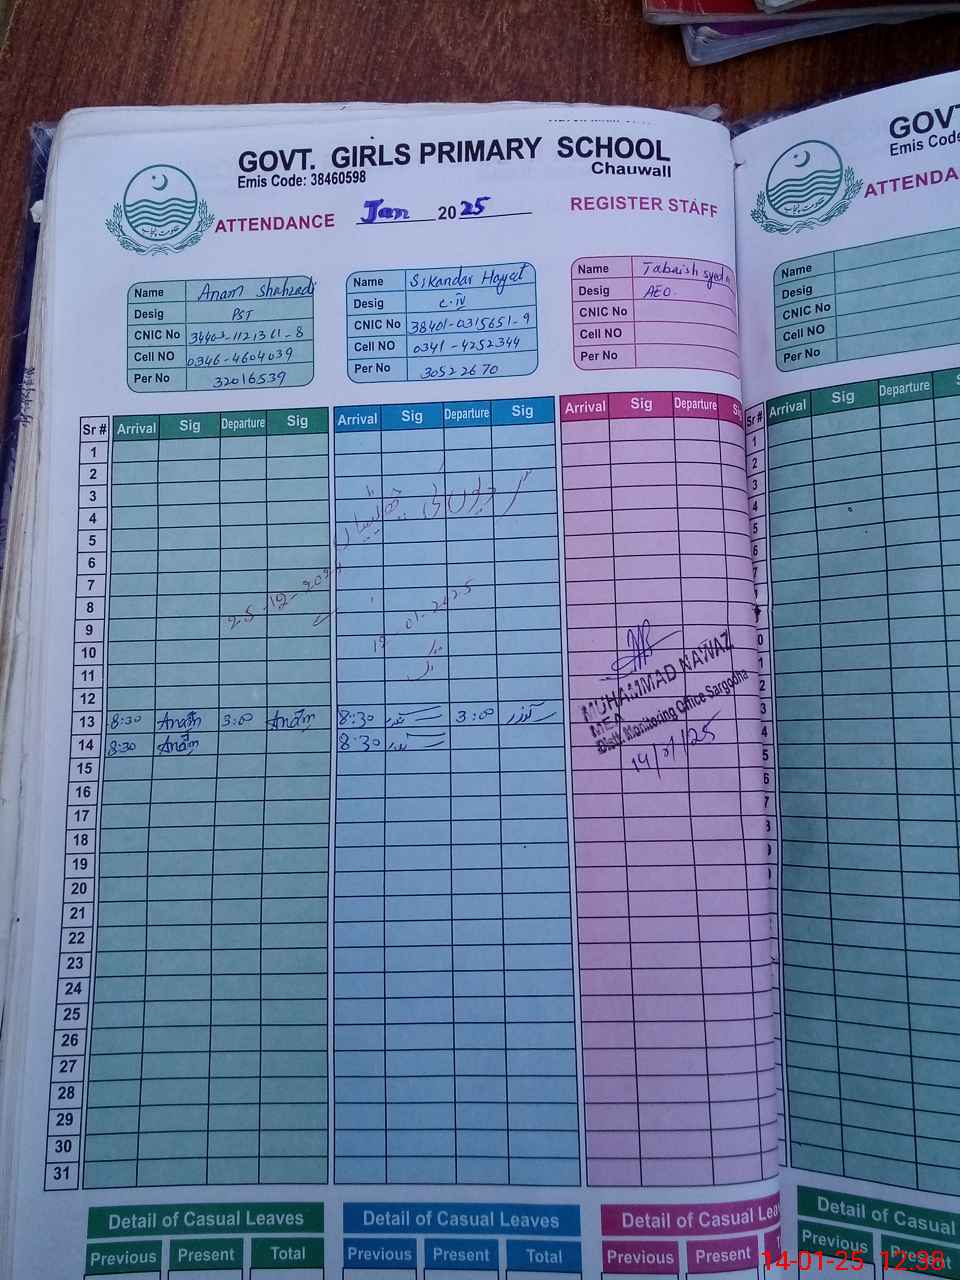 GOVT. GIRLS PRIMARY SCHOOL
Emis Code: 38460598
Chauwall
ATTENDANCE Jan 2025 REGISTER STAFF
Name Anam Shahzadi
Desig PST
CNIC No
Cell NO 0346-4604039
Per No 32016539
Name Sikandar Hayat
Desig C.IV
CNIC No 38401-0315651-9
Cell NO 0341-4252344
Per No 30522670
Name Tabaish syed
Desig AEO.
CNIC No
Cell NO
Per No
Sr # Arrival Sig Departure Sig Arrival Sig Departure Sig Arrival Sig Departure
1
2
3
4
سردیوں کی چھٹیاں
5
6
7
25-12-2024
8
9
19-01-2025
10
11
12
13 8:30 Anam 3:00 Anam 8:30 سکندر 3:00 سکندر
14 8:30 Anam 8:30 سکندر
MUHAMMAD NAWAZ
MEA
Distt. Monitoring Office Sargodha
14/01/25
15
16
17
18
19
20
21
22
23
24
25
26
27
28
29
30
31
Detail of Casual Leaves Detail of Casual Leaves Detail of Casual
Previous Present Total Previous Present Total Previous Present
GOVT
Emis Code
ATTENDA
Name
Desig
CNIC No
Cell NO
Per No
Sr# Arrival Sig Departure
1
2
3
4
5
6
7
Detail of Casual
Previous Present
14-01-25 12:38